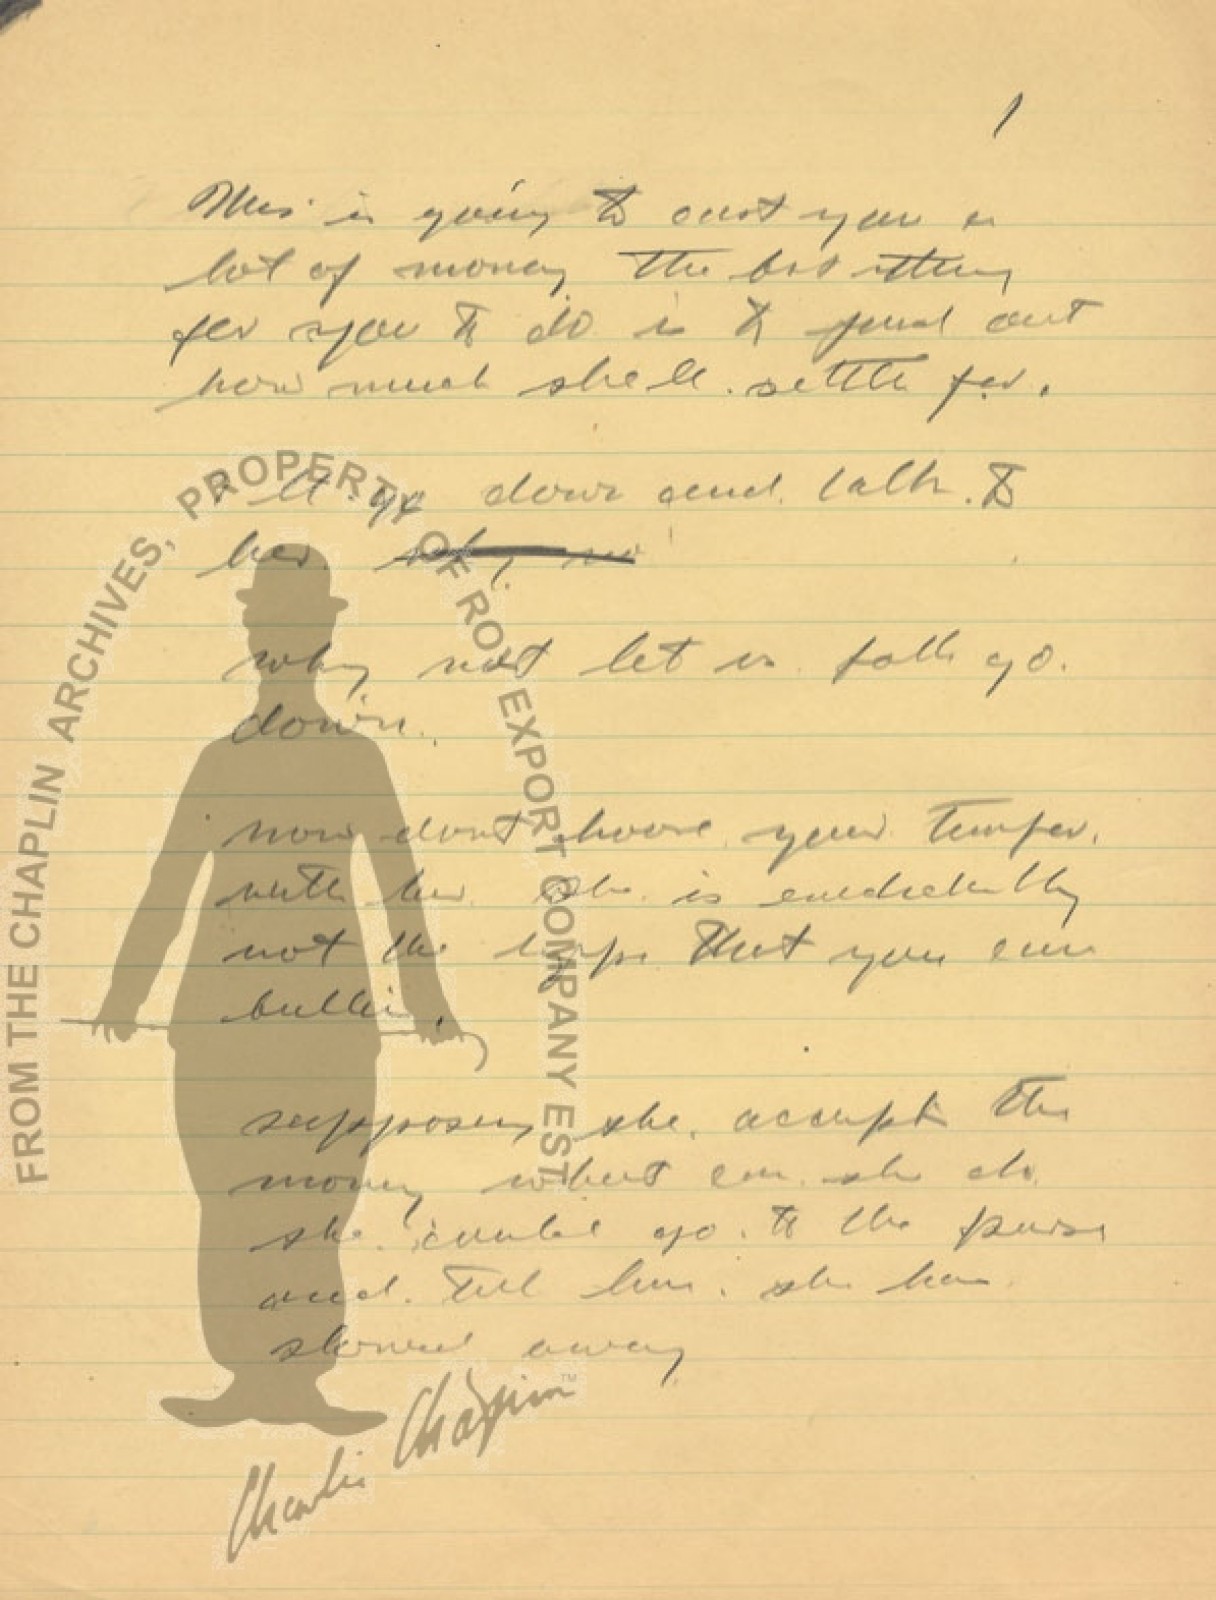 1
This is going to cost you a
lot of money the best thing
for you to do is to find out
how much she ll settle for.
I ll go down and talk to
her. why no
why not let us both go
down.
now dont loose your temper.
with her she is evidently
not the type that you can
bulli.
supposing she accept the
money what can she do
she could go to the purser
and tell him she has
stowed away
FROM THE CHAPLIN ARCHIVES, PROPERTY OF ROY EXPORT COMPANY EST
Charlie Chaplin™